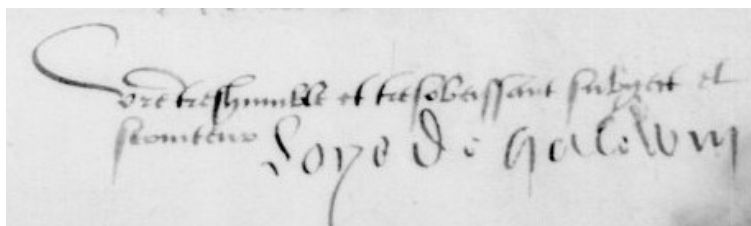 Vre treshumble et tresobeissant subgect et
serviteur Loys de halewin